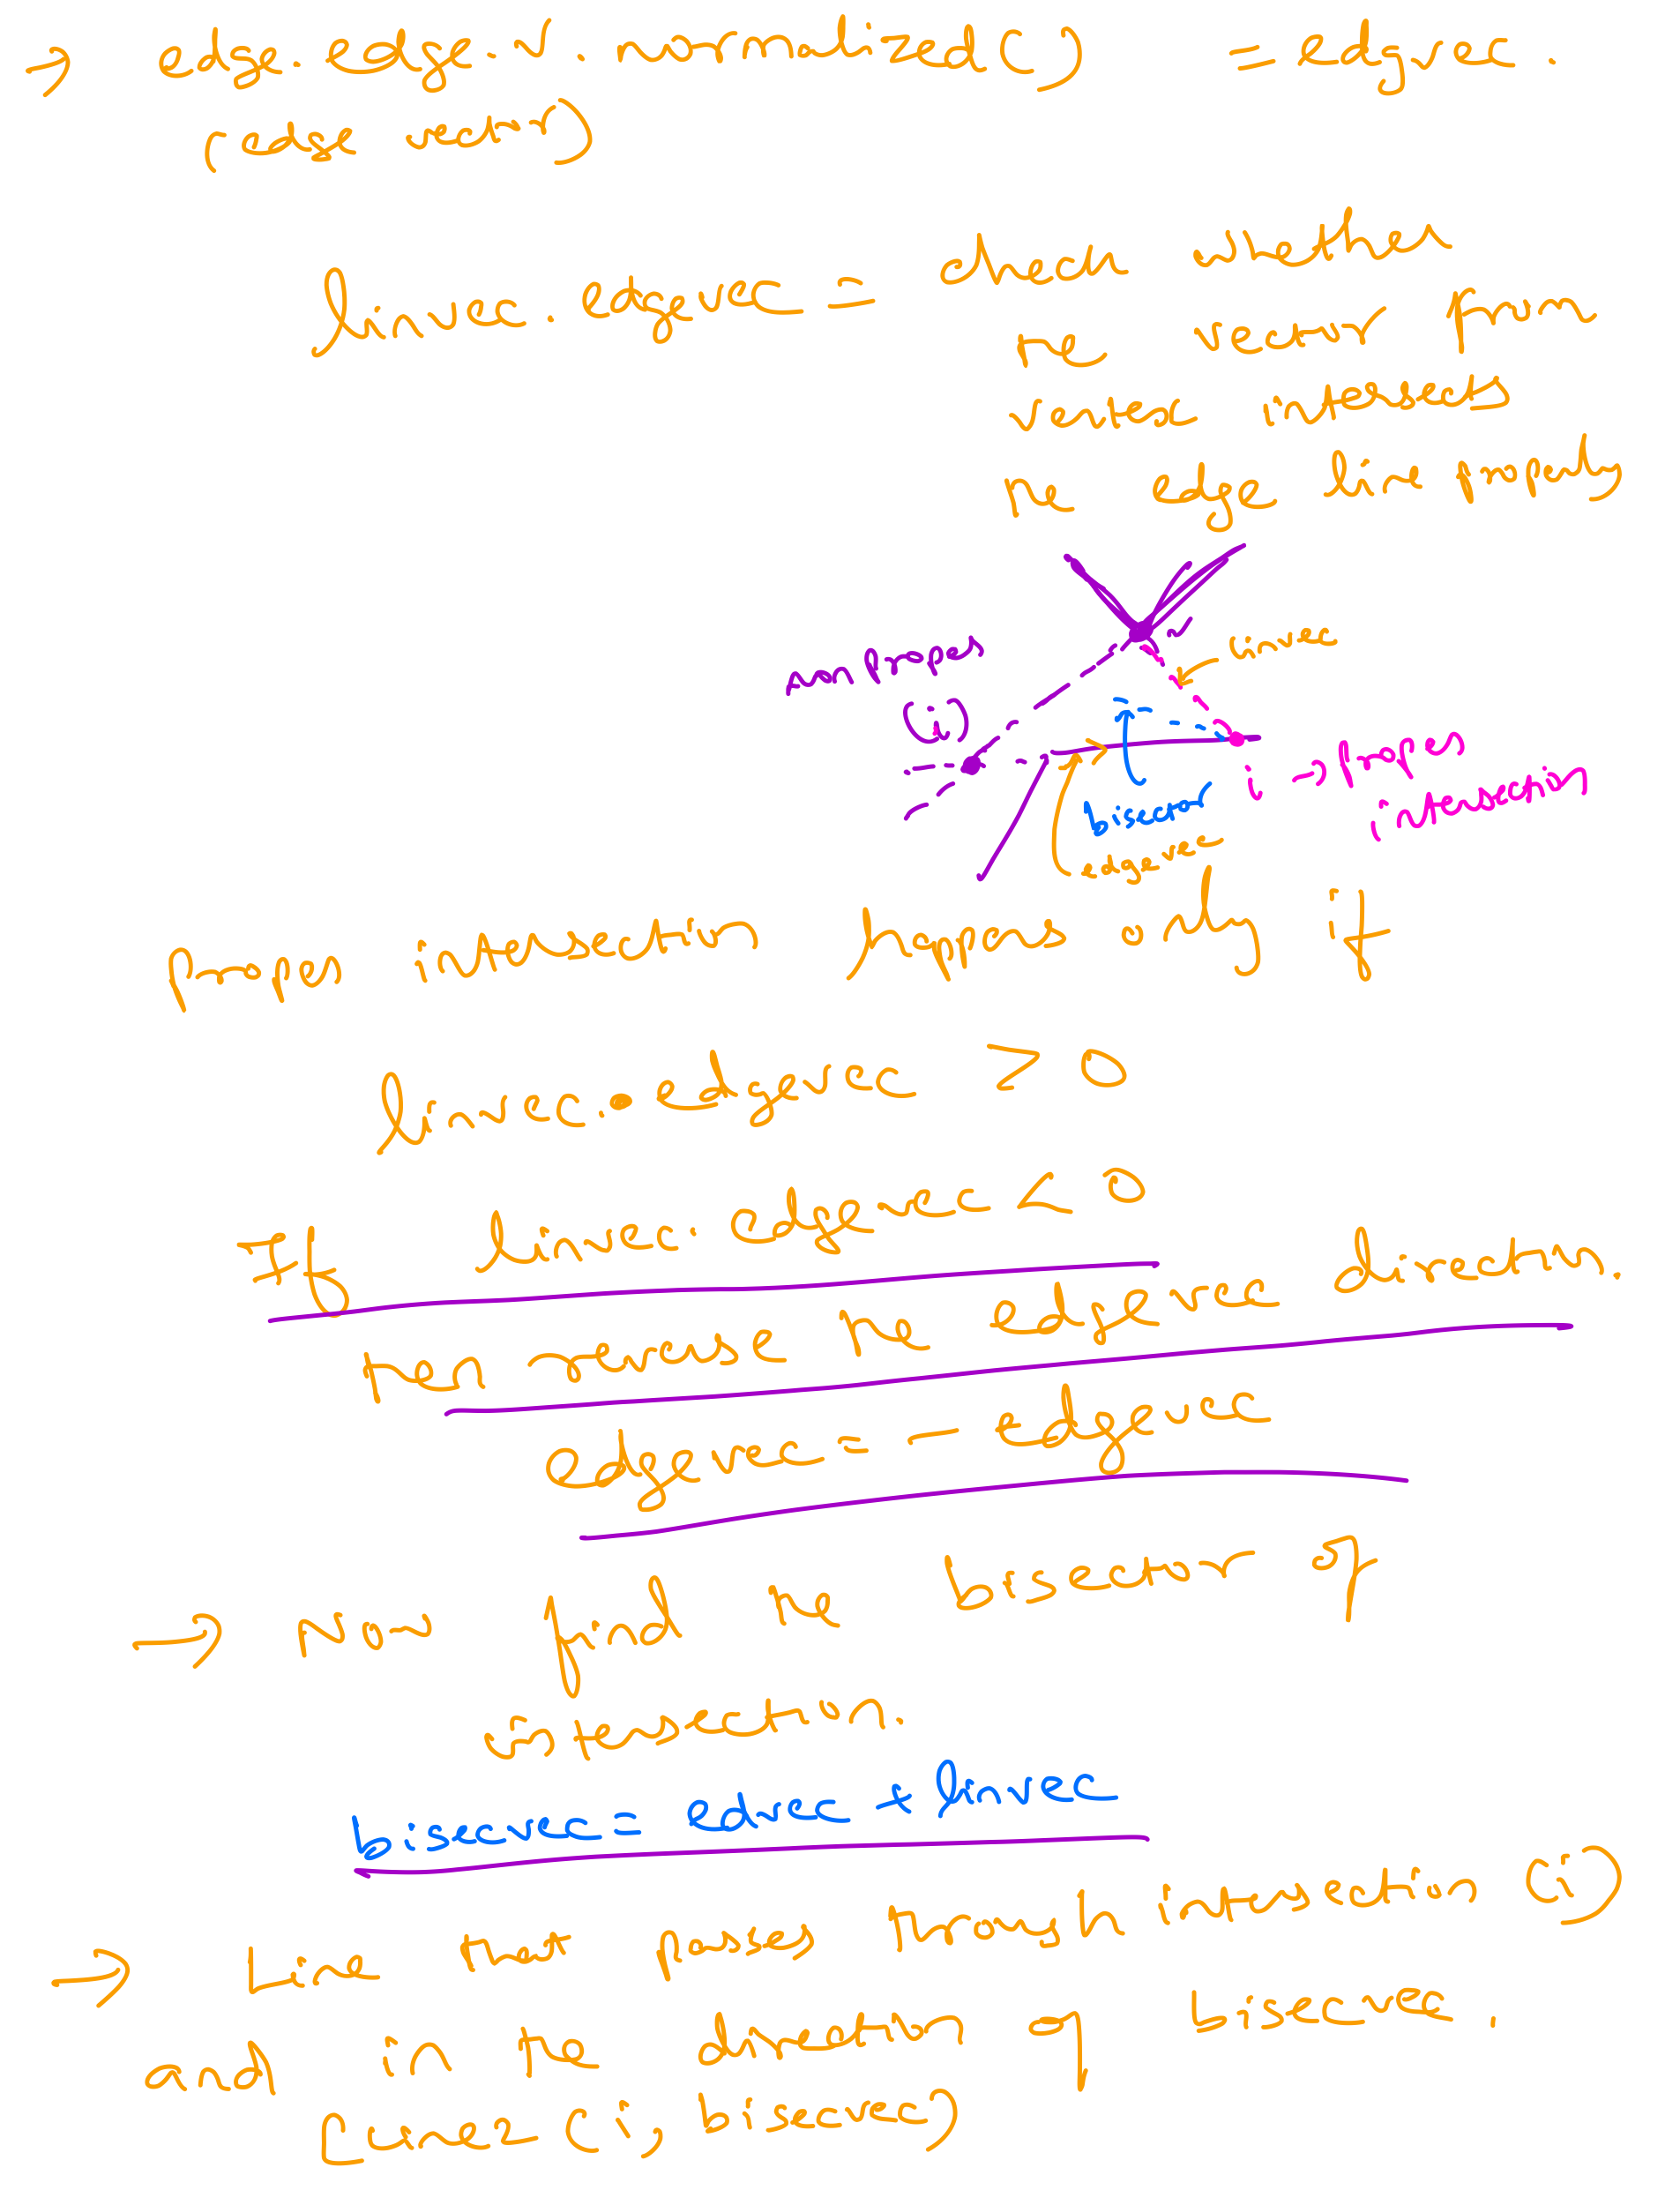 → edge.edge.v.normalized() = edgvec.
(edge vector)
linvec.edgevec = check whether
the vector from
vertex intersects
the edge line properly
non proper
(i)
v
linvec
bisector
edgevec
i → proper
intersection
proper intersection happens only if
linvec.edgevec > 0
If linvec.edgevec < 0
then reverse the edgevec direction.
edgevec = - edgevec
→ Now find the bisector of
intersection.
bisecvec = edvec + linvec
→ Line that passes through intersection (i)
and in the direction of bisecvec.
Line2(i, bisecvec)